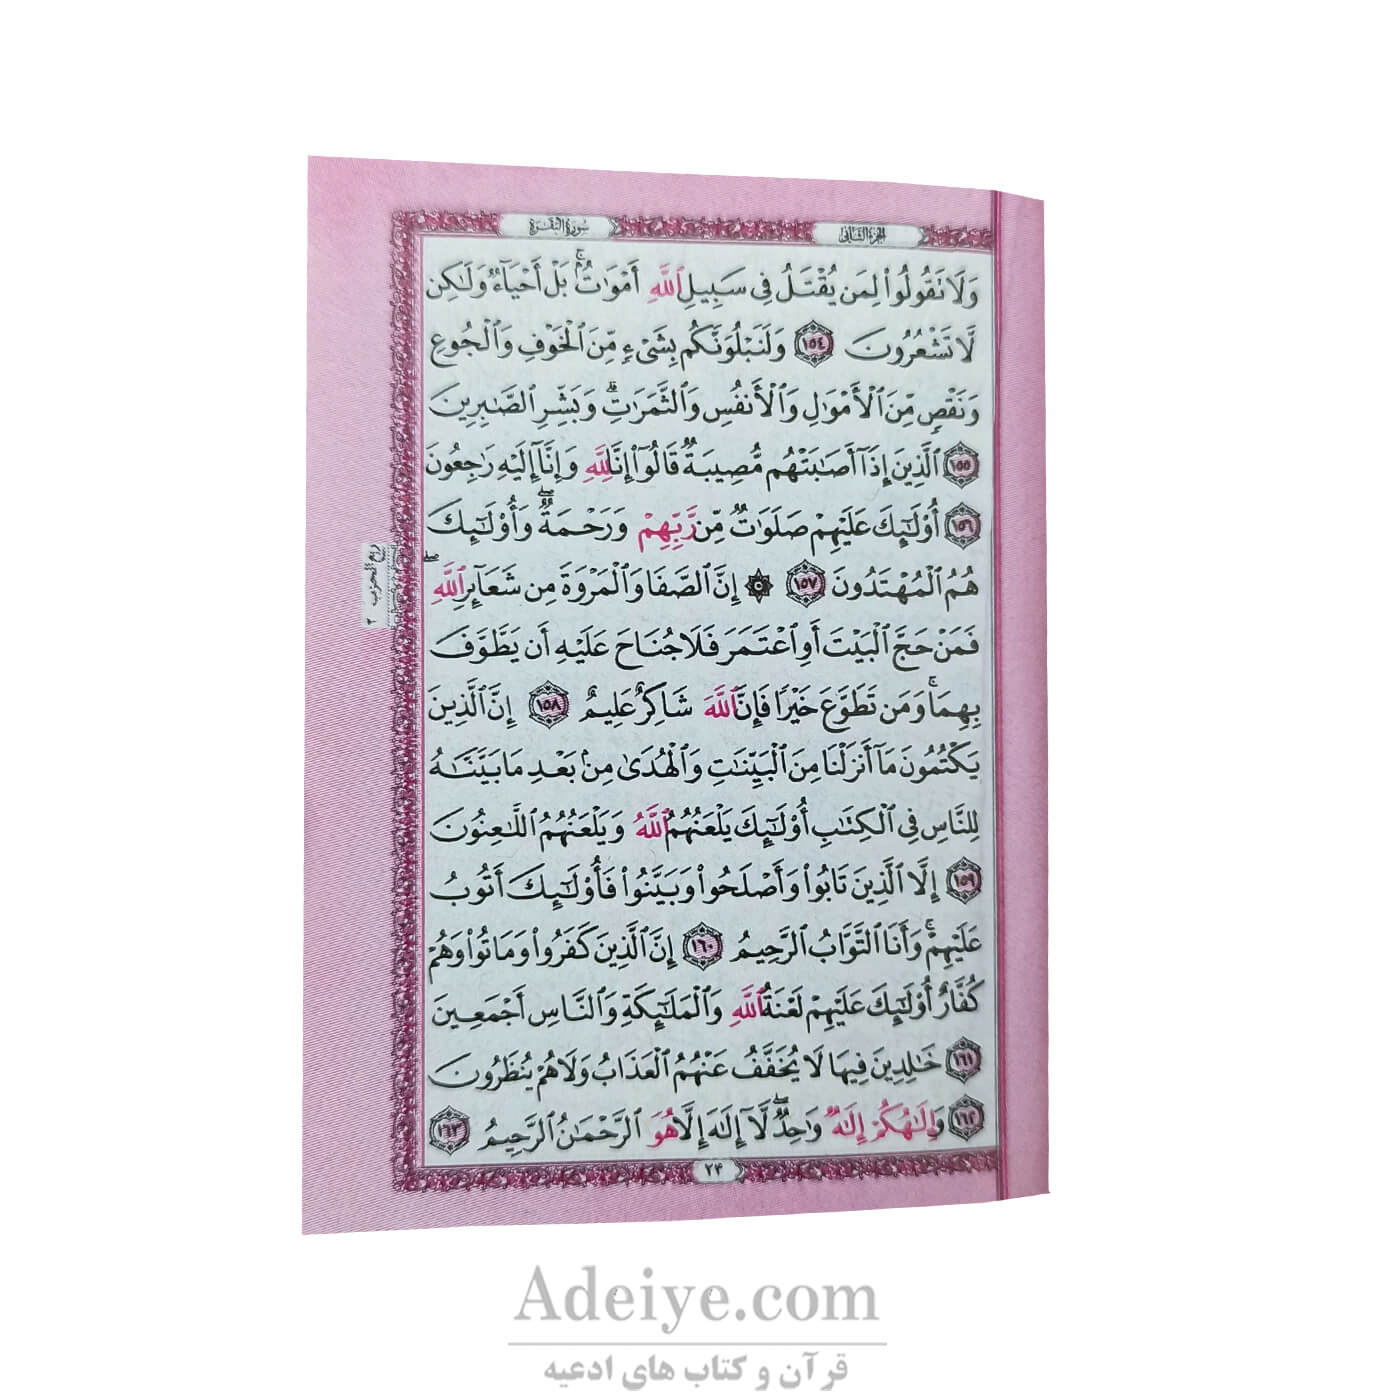 الجزء الثاني
سورة البقرة
وَلَا تَقُولُوا۟ لِمَن يُقْتَلُ فِى سَبِيلِ ٱللَّهِ أَمْوَٰتٌۢ ۚ بَلْ أَحْيَآءٌ وَلَـٰكِن
لَّا تَشْعُرُونَ ١٥٤ وَلَنَبْلُوَنَّكُم بِشَىْءٍ مِّنَ ٱلْخَوْفِ وَٱلْجُوعِ
وَنَقْصٍ مِّنَ ٱلْأَمْوَٰلِ وَٱلْأَنفُسِ وَٱلثَّمَرَٰتِ ۗ وَبَشِّرِ ٱلصَّـٰبِرِينَ
١٥٥ ٱلَّذِينَ إِذَآ أَصَـٰبَتْهُم مُّصِيبَةٌ قَالُوٓا۟ إِنَّا لِلَّهِ وَإِنَّآ إِلَيْهِ رَٰجِعُونَ
١٥٦ أُو۟لَـٰٓئِكَ عَلَيْهِمْ صَلَوَٰتٌ مِّن رَّبِّهِمْ وَرَحْمَةٌ ۖ وَأُو۟لَـٰٓئِكَ
هُمُ ٱلْمُهْتَدُونَ ١٥٧ ۞ إِنَّ ٱلصَّفَا وَٱلْمَرْوَةَ مِن شَعَآئِرِ ٱللَّهِ ۖ
فَمَنْ حَجَّ ٱلْبَيْتَ أَوِ ٱعْتَمَرَ فَلَا جُنَاحَ عَلَيْهِ أَن يَطَّوَّفَ
بِهِمَا ۚ وَمَن تَطَوَّعَ خَيْرًا فَإِنَّ ٱللَّهَ شَاكِرٌ عَلِيمٌ ١٥٨ إِنَّ ٱلَّذِينَ
يَكْتُمُونَ مَآ أَنزَلْنَا مِنَ ٱلْبَيِّنَـٰتِ وَٱلْهُدَىٰ مِنۢ بَعْدِ مَا بَيَّنَّـٰهُ
لِلنَّاسِ فِى ٱلْكِتَـٰبِ أُو۟لَـٰٓئِكَ يَلْعَنُهُمُ ٱللَّهُ وَيَلْعَنُهُمُ ٱللَّـٰعِنُونَ
١٥٩ إِلَّا ٱلَّذِينَ تَابُوا۟ وَأَصْلَحُوا۟ وَبَيَّنُوا۟ فَأُو۟لَـٰٓئِكَ أَتُوبُ
عَلَيْهِمْ ۚ وَأَنَا ٱلتَّوَّابُ ٱلرَّحِيمُ ١٦٠ إِنَّ ٱلَّذِينَ كَفَرُوا۟ وَمَاتُوا۟ وَهُمْ
كُفَّارٌ أُو۟لَـٰٓئِكَ عَلَيْهِمْ لَعْنَةُ ٱللَّهِ وَٱلْمَلَـٰٓئِكَةِ وَٱلنَّاسِ أَجْمَعِينَ
١٦١ خَـٰلِدِينَ فِيهَا لَا يُخَفَّفُ عَنْهُمُ ٱلْعَذَابُ وَلَا هُمْ يُنظَرُونَ
١٦٢ وَإِلَـٰهُكُمْ إِلَـٰهٌ وَٰحِدٌ ۖ لَّآ إِلَـٰهَ إِلَّا هُوَ ٱلرَّحْمَـٰنُ ٱلرَّحِيمُ ١٦٣
٢۴
ربع الحزب ٢
Adeiye.com
قرآن و کتاب های ادعیه